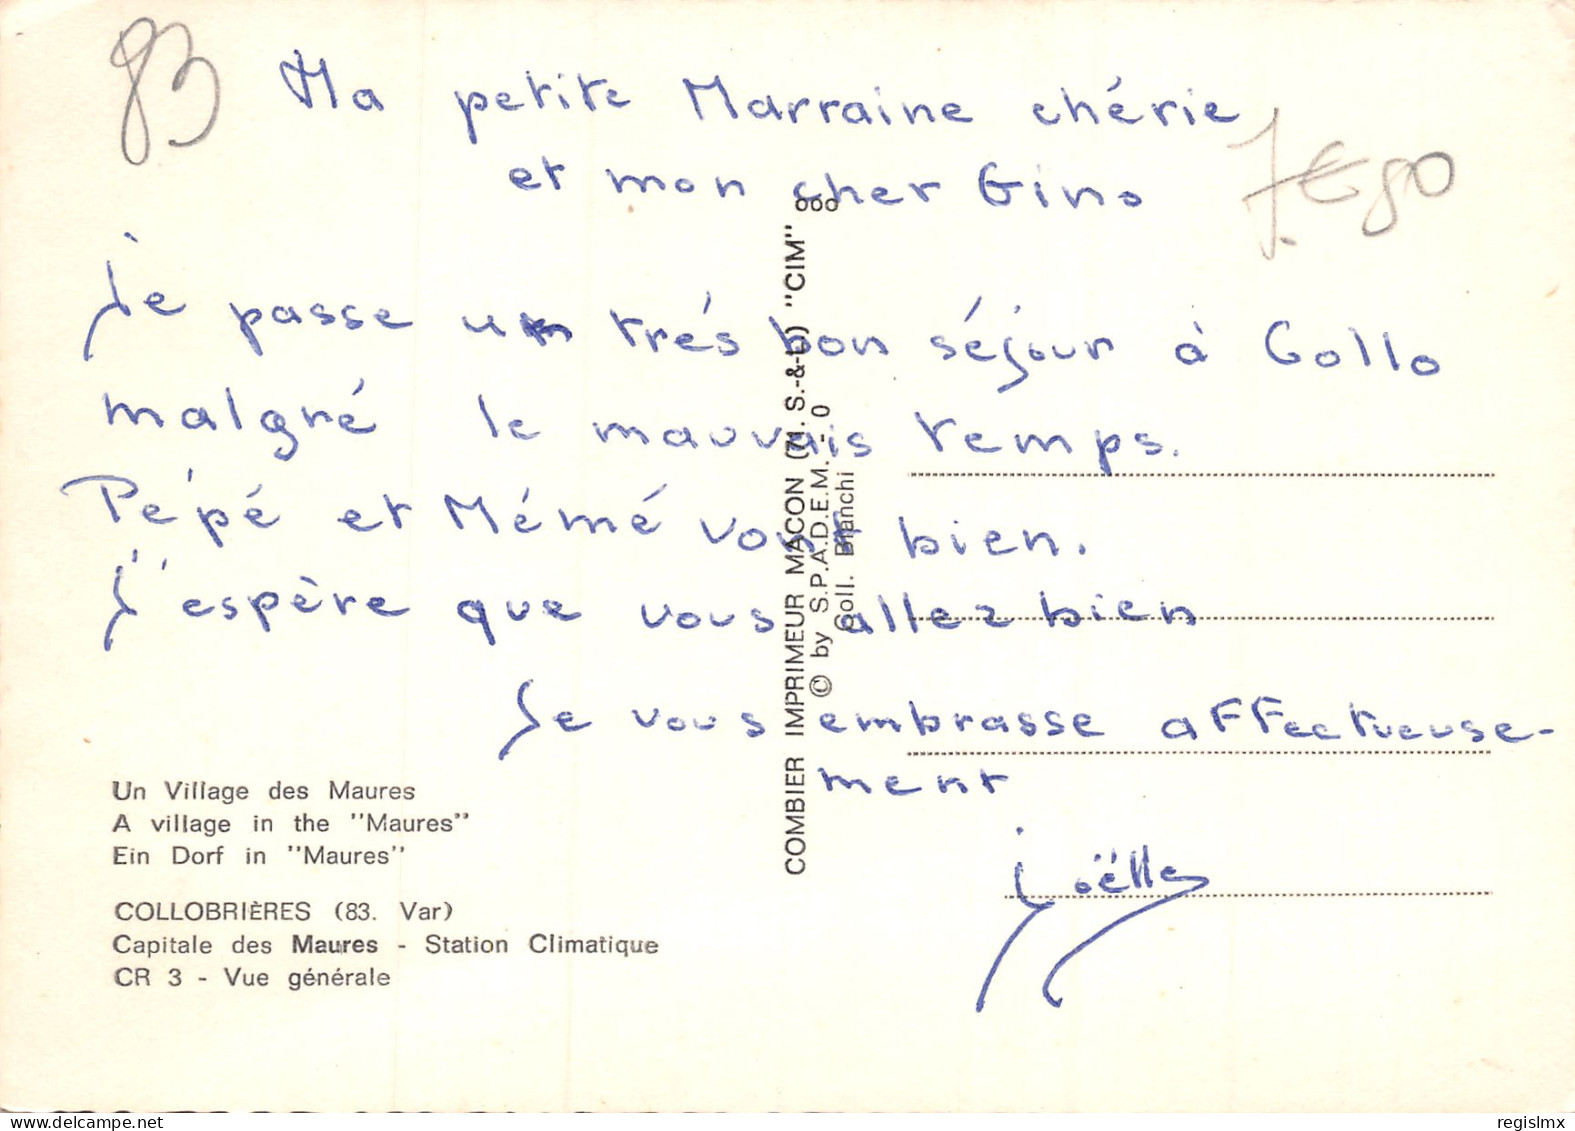 83
Ma petite Marraine chérie
et mon cher Gino
Je passe un très bon séjour à Collo
malgré le mauvais temps.
Pépé et Mémé vont bien.
J'espère que vous allez bien
Je vous embrasse affectueuse-
ment
Joëlle
COMBIER IMPRIMEUR MACON (71. S.-&-L) "CIM"
© by S.P.A.D.E.M. - 0
Coll. Bianchi
Un Village des Maures
A village in the "Maures"
Ein Dorf in "Maures"
COLLOBRIÈRES (83. Var)
Capitale des Maures - Station Climatique
CR 3 - Vue générale
regislmx